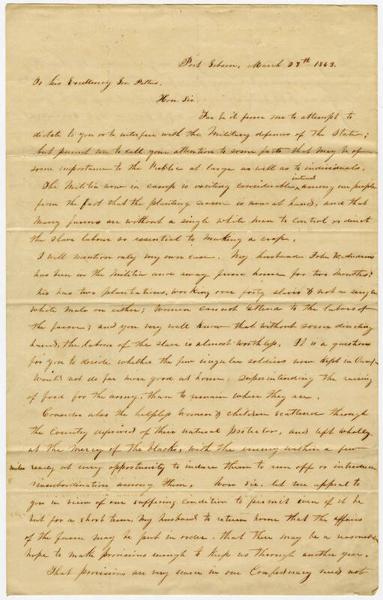 Port Gibson, March 28th 1863.
To his Excellency Gov Pettus.
Hon. Sir
Far be it from me to attempt to
dictate to you or to interfere with the Military defenses of the State;
but permit me to call your attention to some facts that may be of
some importance to the Public at large as well as to individuals.
The Militia now in camp is exciting considerable interest among our people
from the fact that the planting season is now at hand, and that
many farms are without a single white man to control or direct
the slave labour so essential to making a crop.
I will mention only my own case. My husband John
has been in the Militia now away from home for two months;
he has two plantations, working over forty slaves & not a single
white male on either; Women cannot attend to the labors of
the farm; and you very well know that without some directing
hand, the labor of the slave is almost worthless. It is a question
for you to decide whether the few irregular soldiers now kept in Camp
Would not do far more good at home, superintending the raising
of food for the army, than to remain where they are.
Consider also the helpless women & children scattered through
the Country deprived of their natural protector, and left wholly
at the mercy of the blacks, with the enemy within a few
miles ready at every opportunity to induce them to run off or introduce
insubordination among them. Now Sir, let me appeal to
you in view of our suffering condition to permit even if it be
but for a short time my husband to return home that the affairs
of the farm may be put in order, that there may be a reasonable
hope to make provisions enough to keep us through another year.
That provisions are very scarce in our Confederacy need not